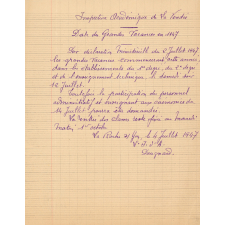 Inspection Académique de la Vendée
Date des Grandes Vacances en 1947
Par décision Ministérielle du 2 Juillet 1947,
les grandes vacances commenceront cette année,
dans les établissements du 1er degré, du 2e degré
et de l'enseignement technique, le samedi soir
12 Juillet.
Toutefois la participation du personnel
administratif et enseignant aux cérémonies du
14 Juillet pourra être demandée.
La rentrée des classes reste fixée au mercredi
matin, 1er octobre.
La Roche s/Yon, le 4 Juillet 1947